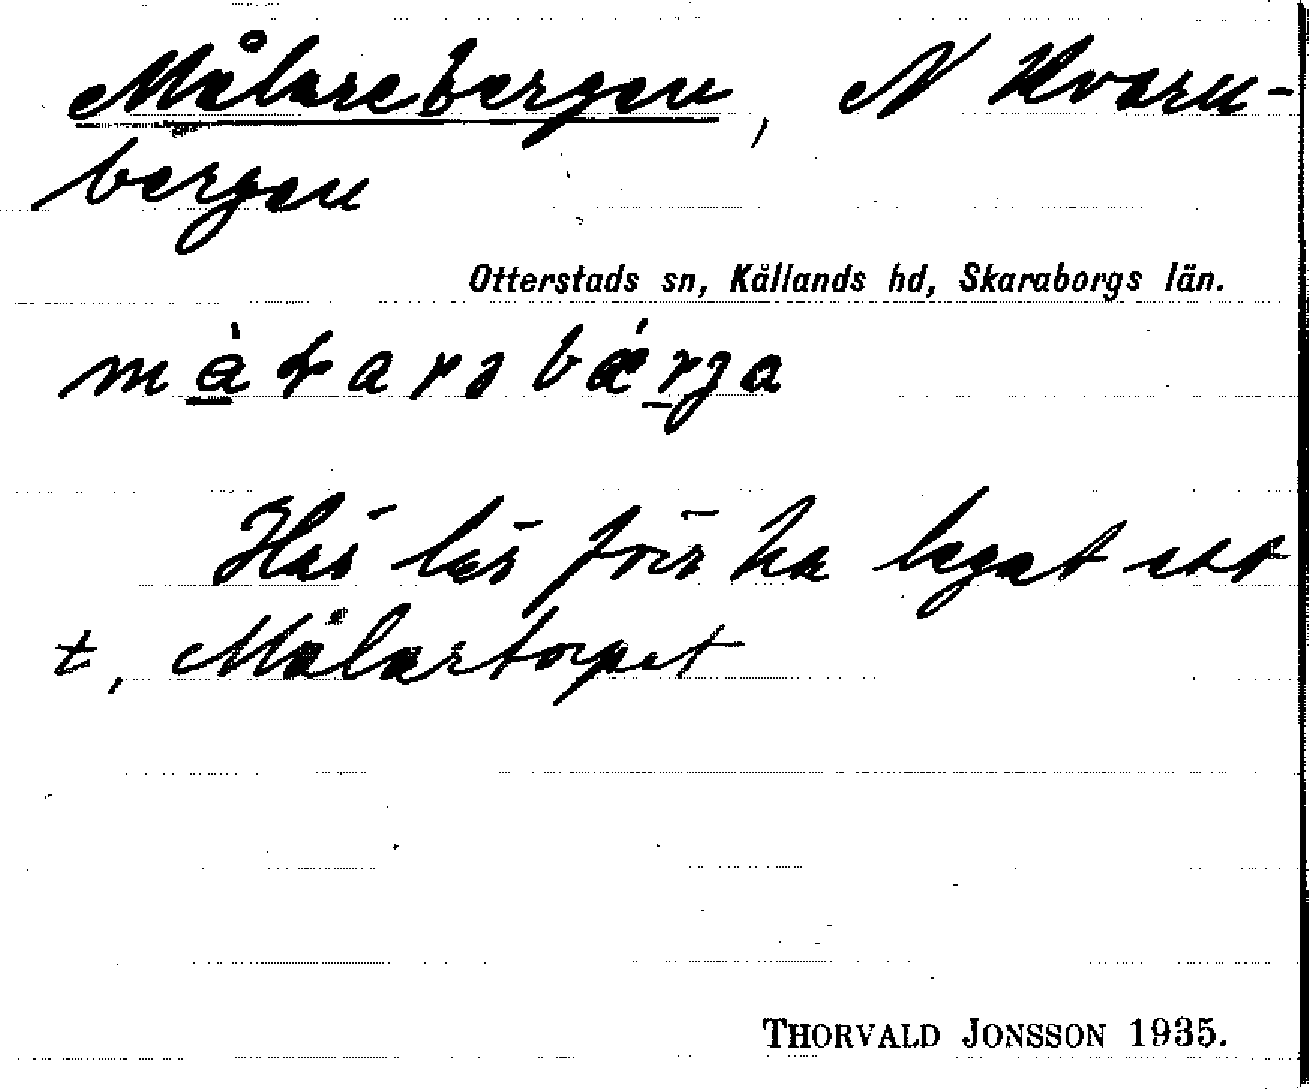 Målarebergen, N Kvarn-
bergen
Otterstads sn, Kållands hd, Skaraborgs län.
Här lär förr ha legat ett
t, Målartorpet
THORVALD JONSSON 1935.